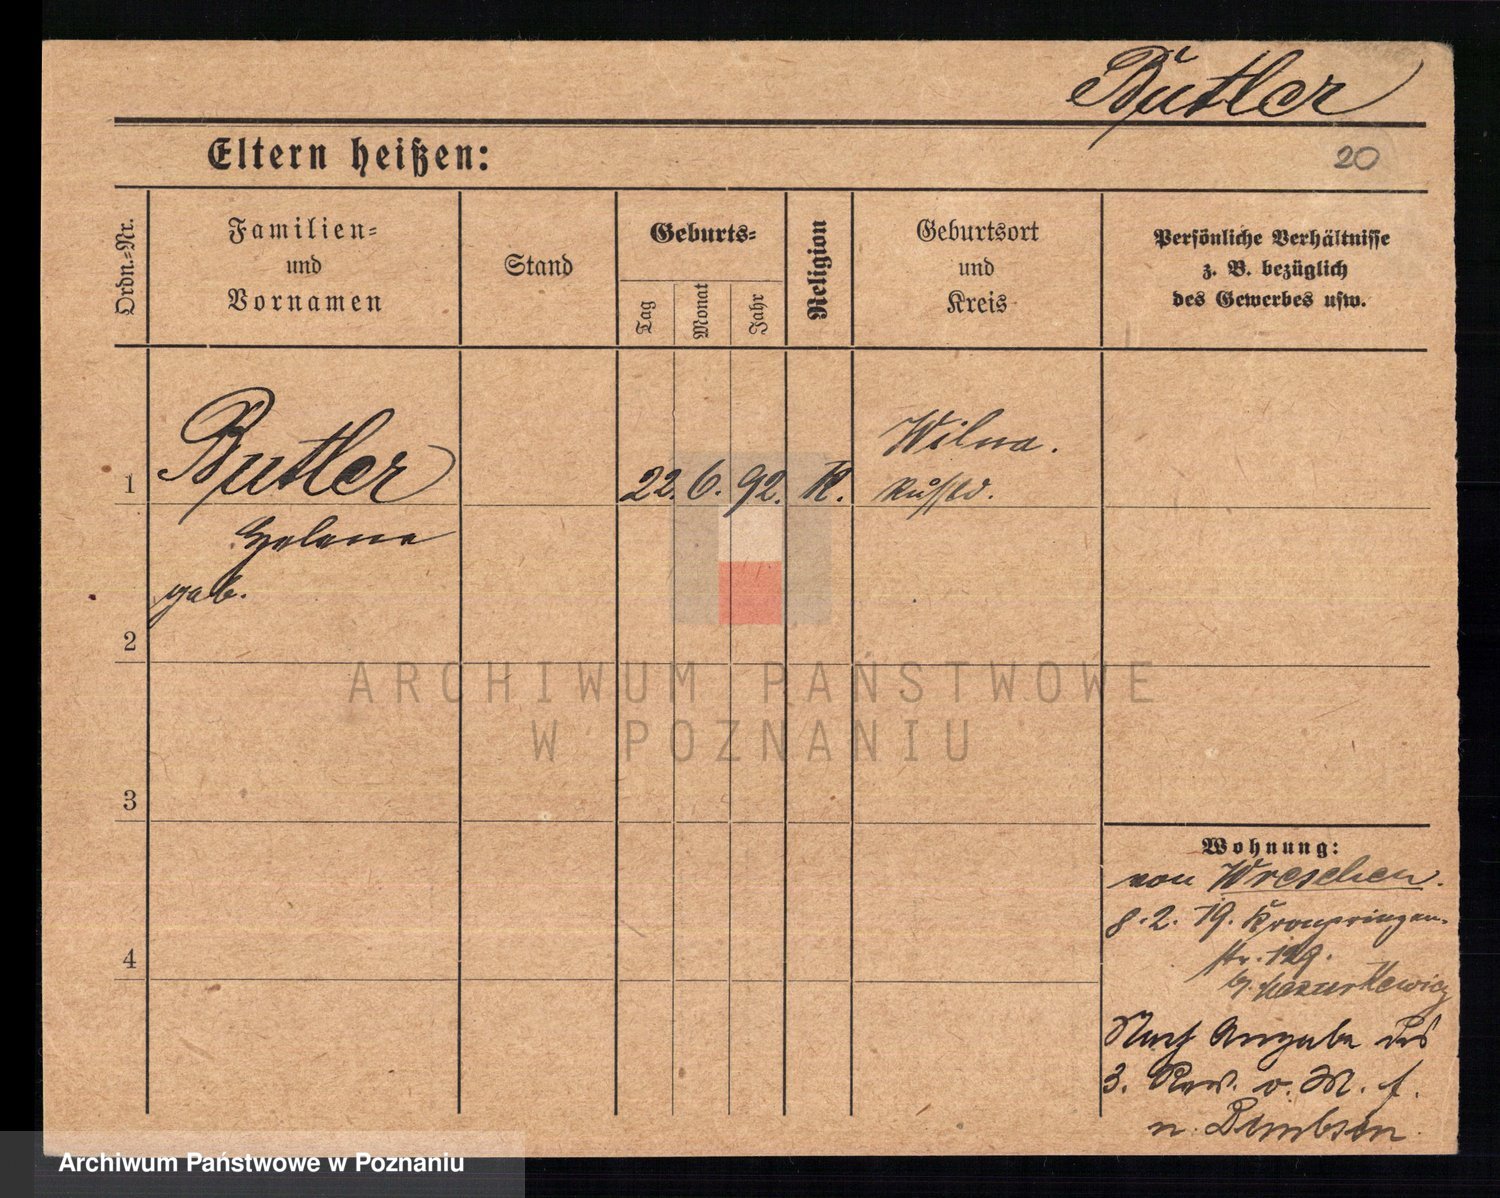 Butler
Eltern heißen:
20
Ordn.-Nr.
Familien-
und
Vornamen
Stand
Geburts-
Tag
Monat
Jahr
Religion
Geburtsort
und
Kreis
Persönliche Verhältnisse
z. B. bezüglich
des Gewerbes usw.
1
Butler
22. 6. 92. K.
Wilna.
Russld.
Helene
geb.
2
3
4
Wohnung:
von Wreschen.
8.2.19. Kronprinzen-
str. 129.
b. Mazurkewicz
Nach Angabe des
3. Rev. v. M. f.
n.
ARCHIWUM PAŃSTWOWE
W POZNANIU
Archiwum Państwowe w Poznaniu